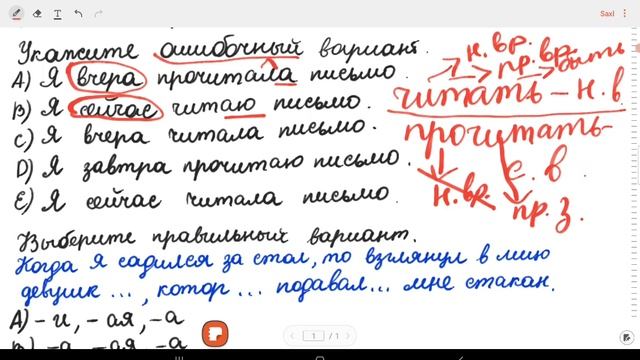 Saxl
Укажите ошибочный вариант.
А) Я вчера прочитала письмо.
В) Я сейчас читаю письмо.
С) Я вчера читала письмо.
D) Я завтра прочитаю письмо.
Е) Я сейчас читала письмо.
н.вр.
пр.вр. быть
читать - н.в
прочитать-
с.в
н.вр.
пр.з.
Выберите правильный вариант.
Когда я садился за стол, то взглянул в лицо
девушк ..., котор ... подавал... мне стакан.
А) - и, - ая, - а
В) - а, - ая, - а
1 / 1